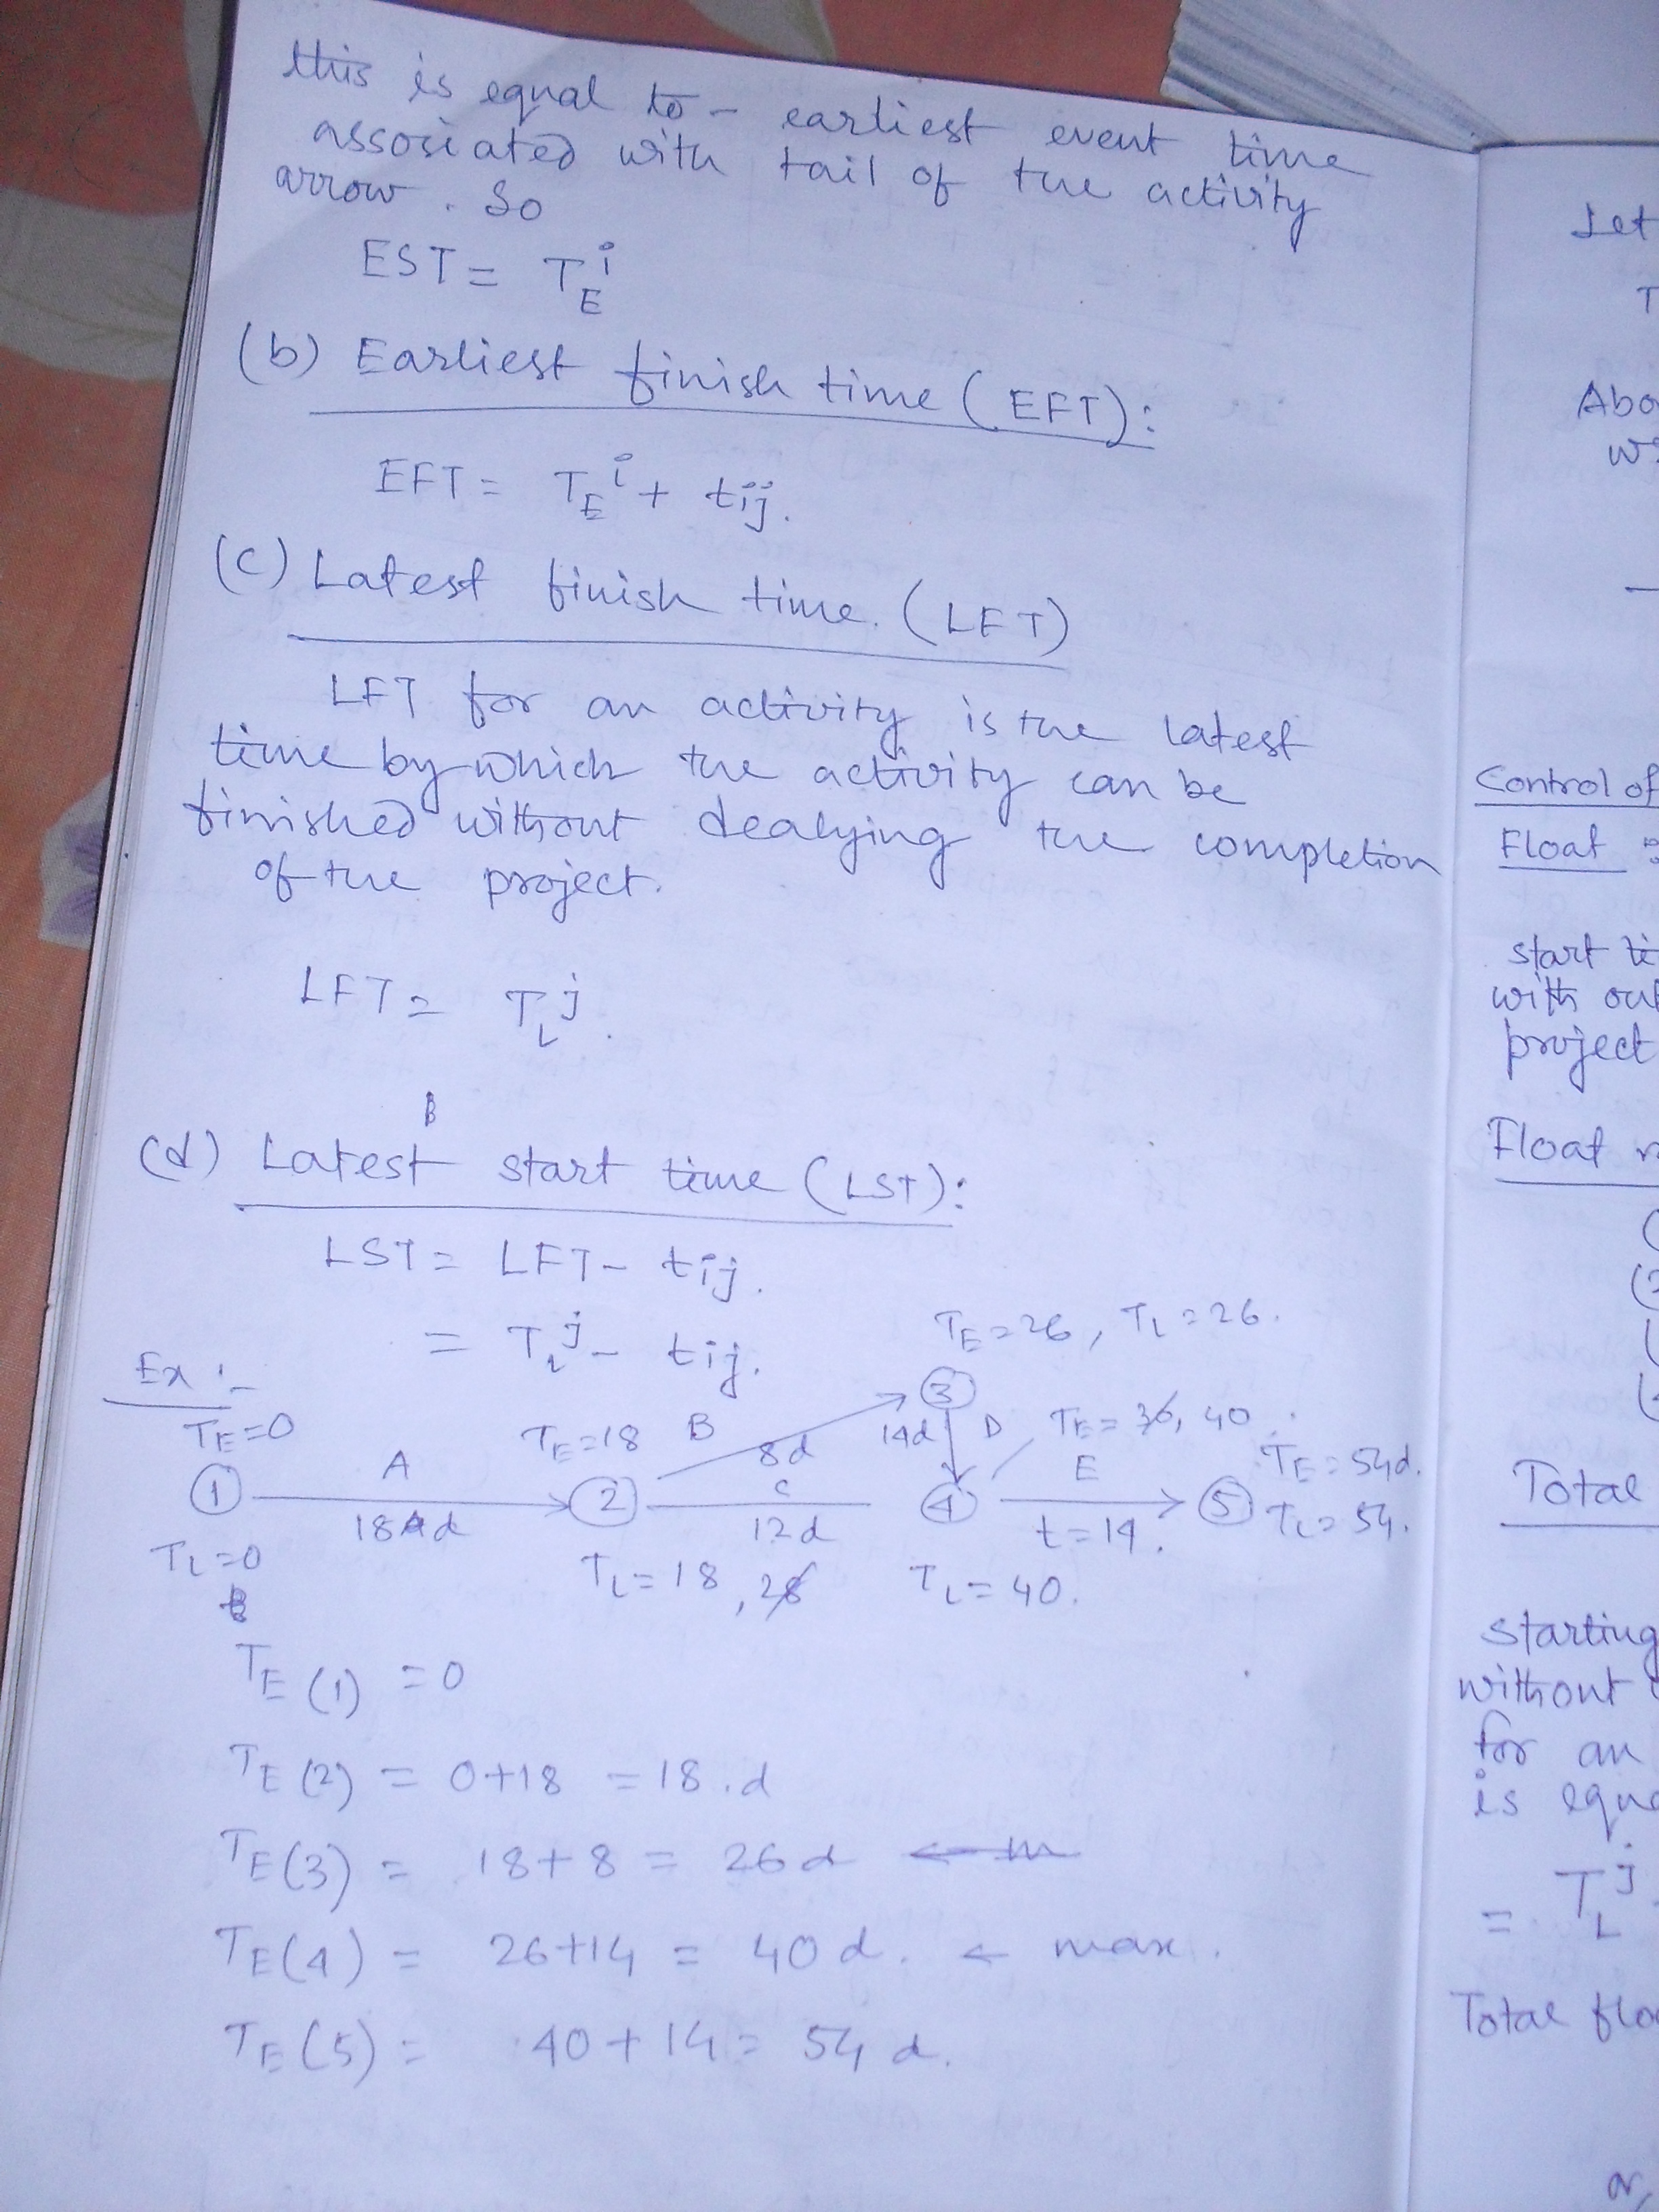 this is equal to - earliest event time
assosiated with tail of the activity
arrow. So
EST = T_E^i
(b) Earliest finish time (EFT):
EFT = T_E^i + tij.
(c) Latest finish time. (LFT)
LFT for an activity is the latest
time by which the activity can be
finished without dealying the completion
of the project.
LFT = T_L^j.
B
(d) Latest start time (LST):
LST = LFT - tij.
= T_L^j - tij.
TE = 26, TL = 26.
Ex :-
TE=0
TE=18
B
8d
3
14d
D
TE = 36, 40
TE = 54d.
1
A
18 d
2
C
12d
4
E
t=14.
5
TL = 54.
TL=0
TL = 18, 26
TL = 40.
TE (1) = 0
TE (2) = 0+18 = 18.d
TE (3) = 18+8 = 26d ←
TE (4) = 26+14 = 40d. ← max.
TE (5) = 40+14 = 54 d.
Let
T
Abo
Control of
Float :
start ti
with out
project
Float
Total
starting
without
for an
is equa
= T_L^j
Total flo
or,